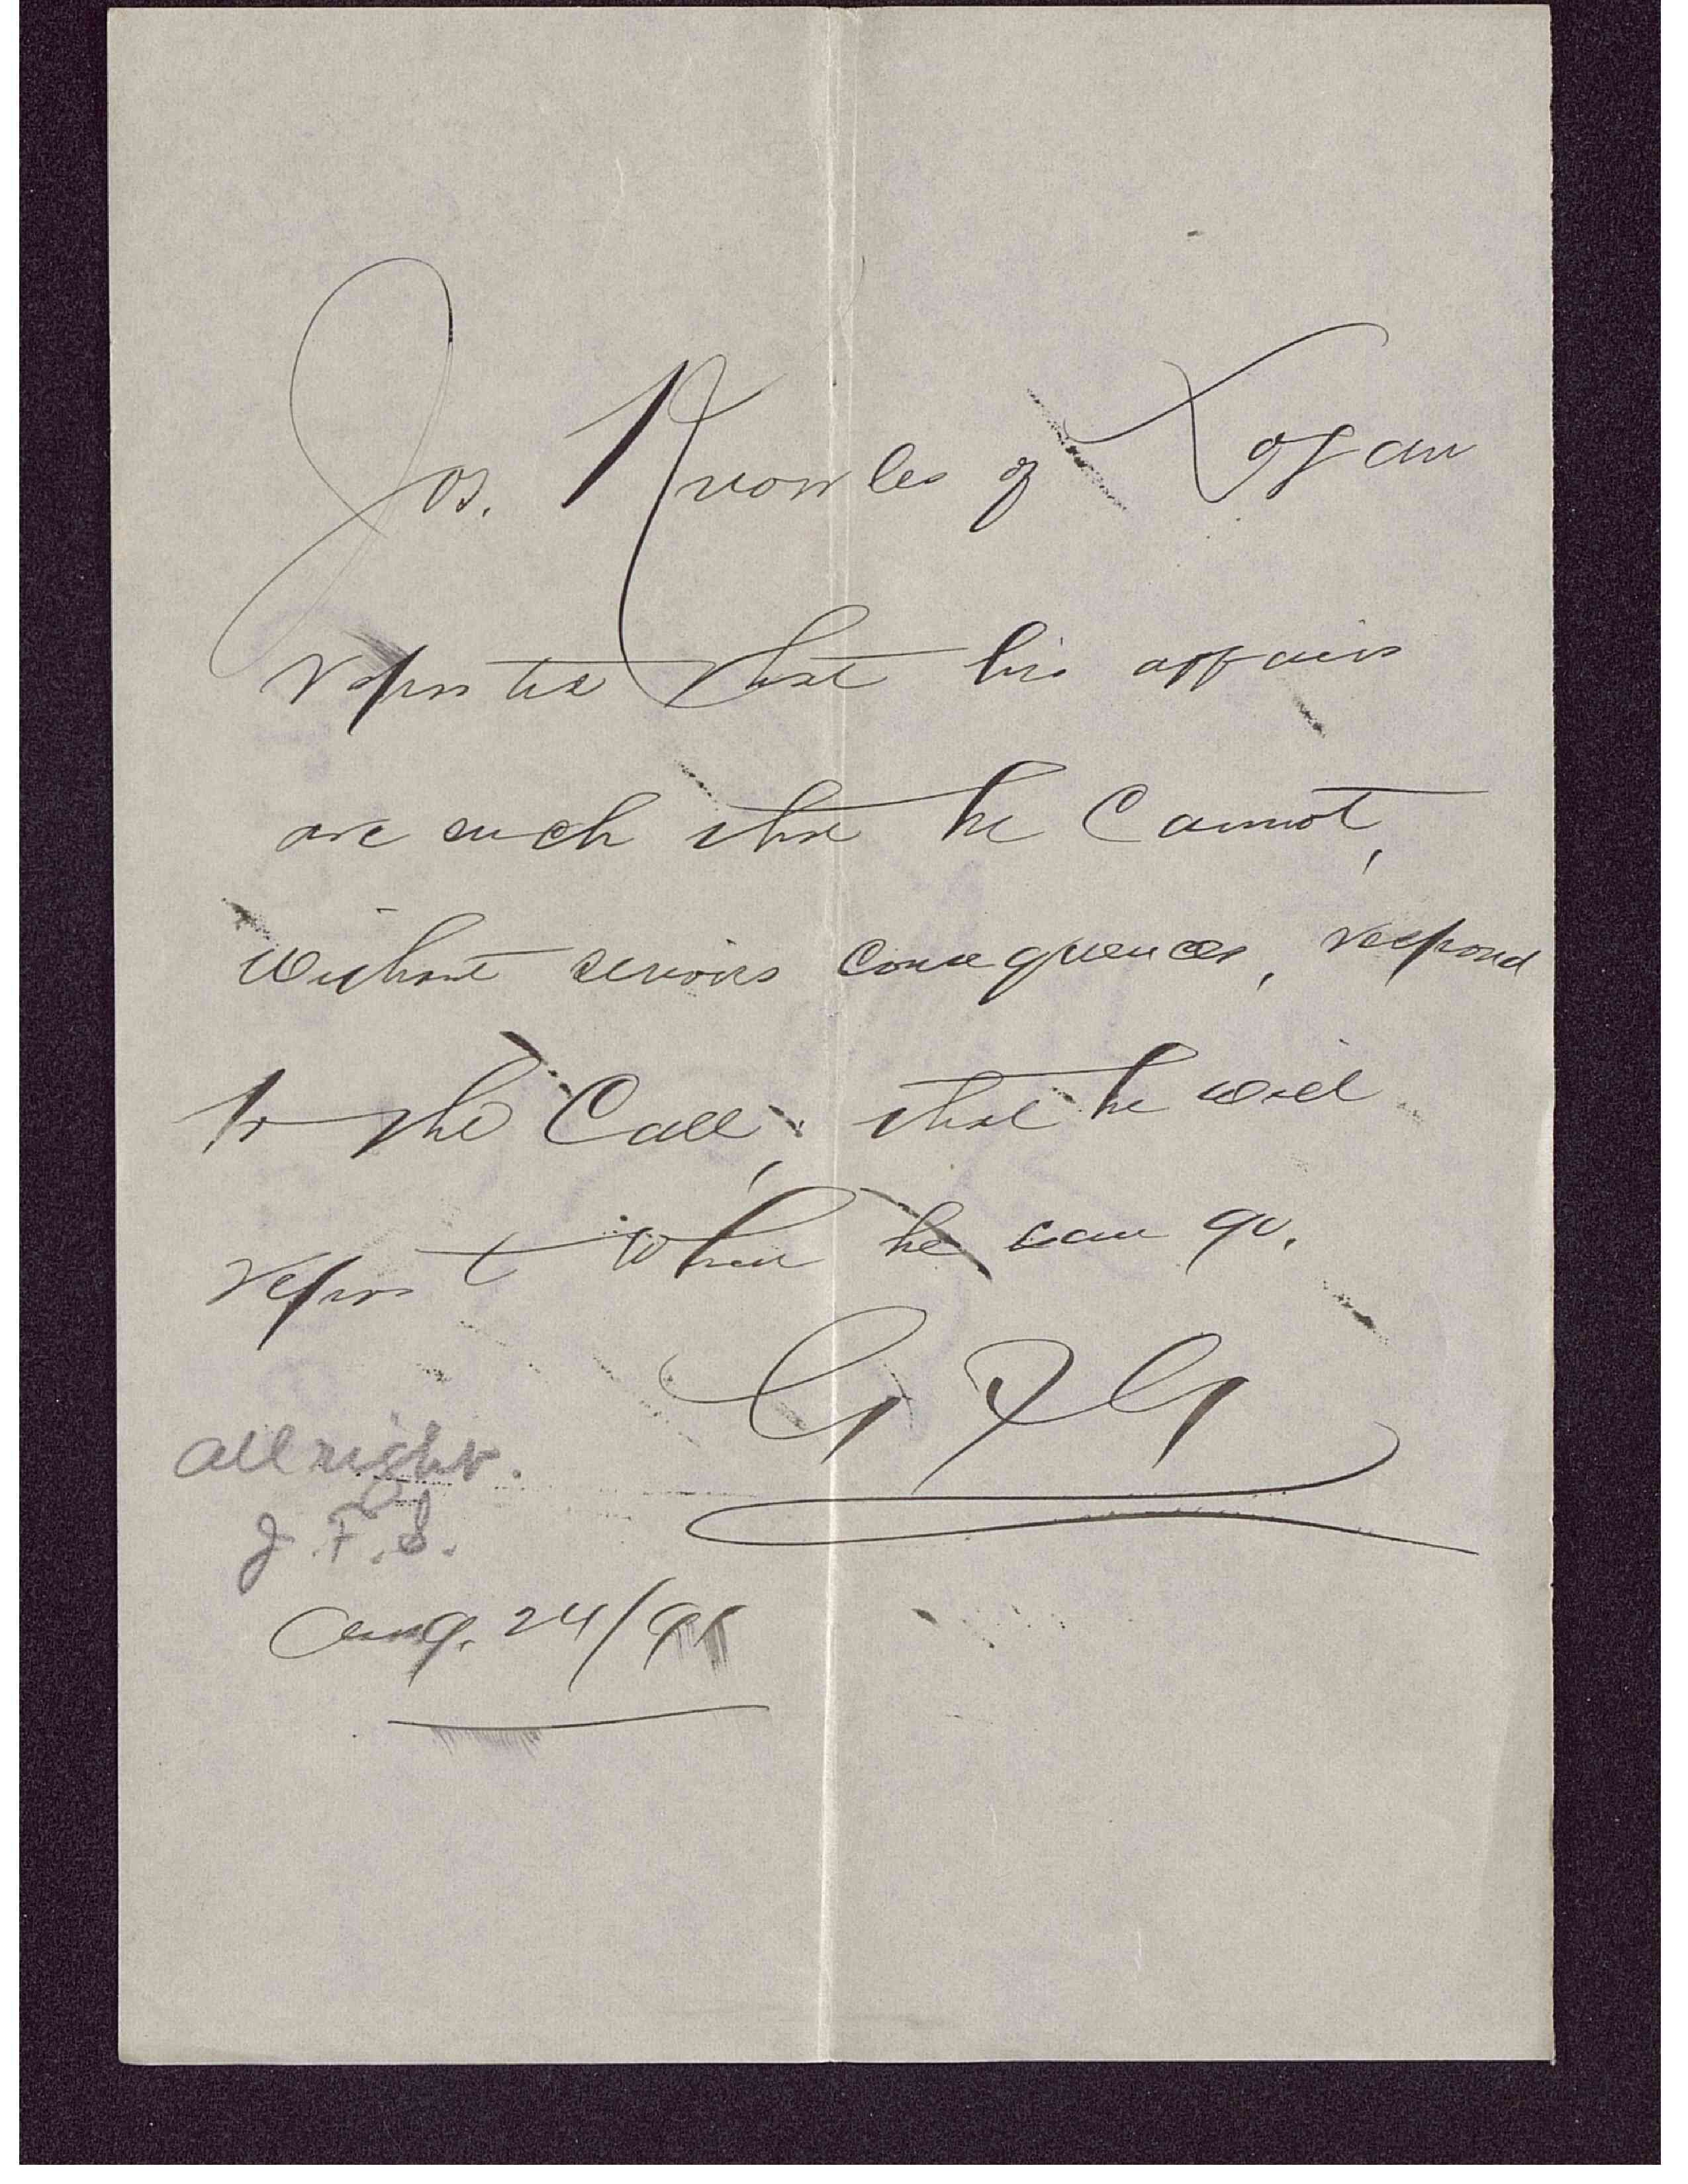 Jos. Knowles of Logan
reports that his affairs
are such that he Cannot,
without serious consequences, respond
to the Call, that he will
report when he can go.
G F G
all right.
J. F. S.
Aug. 24/98